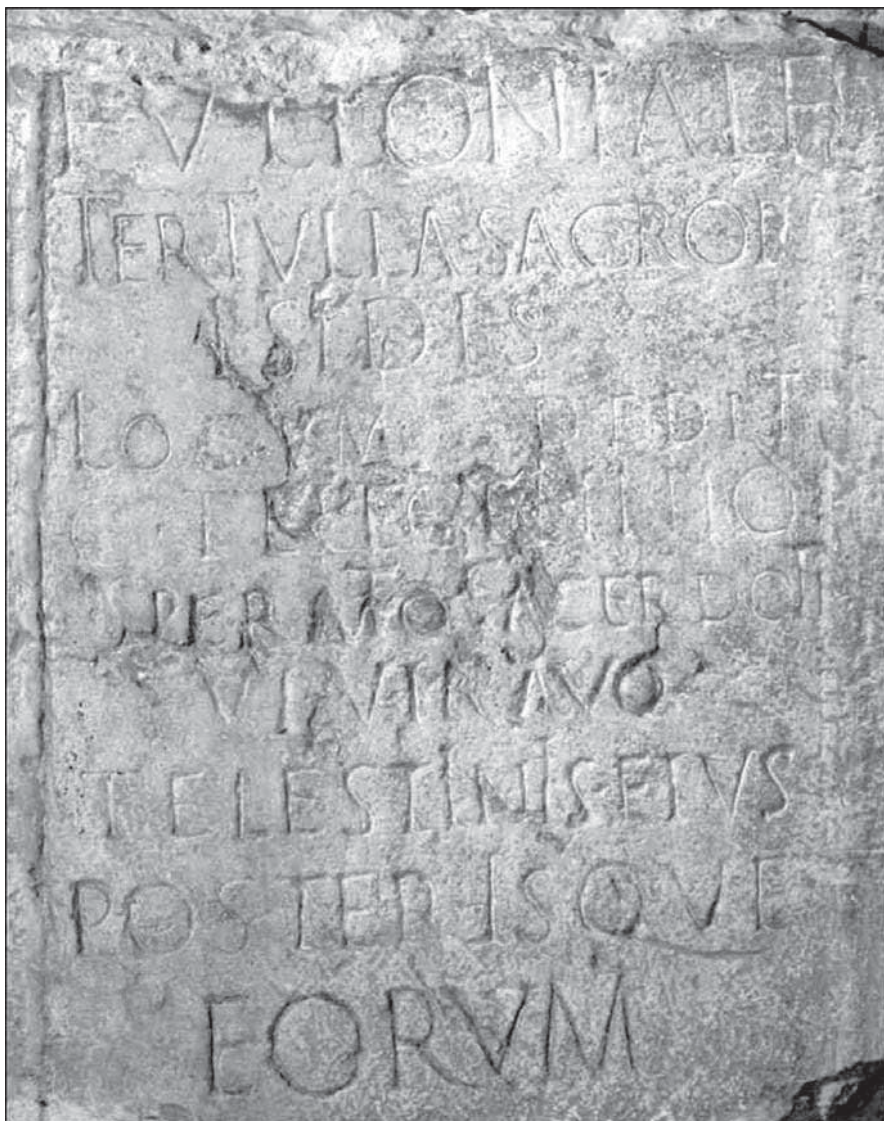 FVLLONIA L F
TERTVLLA SACROR
ISIDIS
LOCVM DEDIT
C
SPERATO SACERDOTI
VI VIR AVG
TELESTINIS ETVS
POSTERISQVE
EORVM